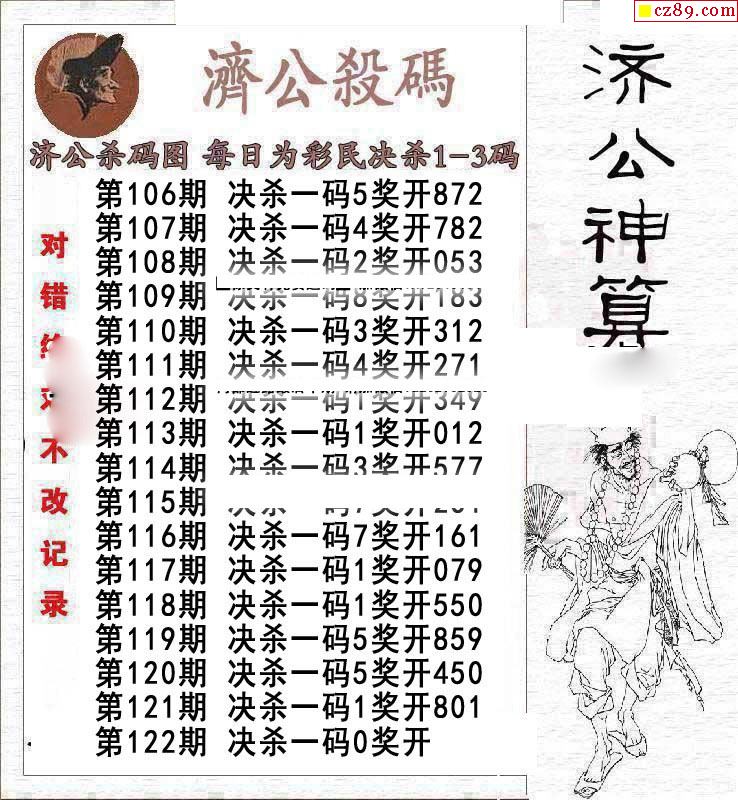 cz89.com
濟公殺碼
济公杀码图 每日为彩民决杀1-3码
第106期 决杀一码5奖开872
第107期 决杀一码4奖开782
第108期 决杀一码2奖开053
第109期 决杀一码8奖开183
第110期 决杀一码3奖开312
第111期 决杀一码4奖开271
第112期 决杀一码1奖开349
第113期 决杀一码1奖开012
第114期 决杀一码3奖开577
第115期
第116期 决杀一码7奖开161
第117期 决杀一码1奖开079
第118期 决杀一码1奖开550
第119期 决杀一码5奖开859
第120期 决杀一码5奖开450
第121期 决杀一码1奖开801
第122期 决杀一码0奖开
对错
不改记录
济公神算